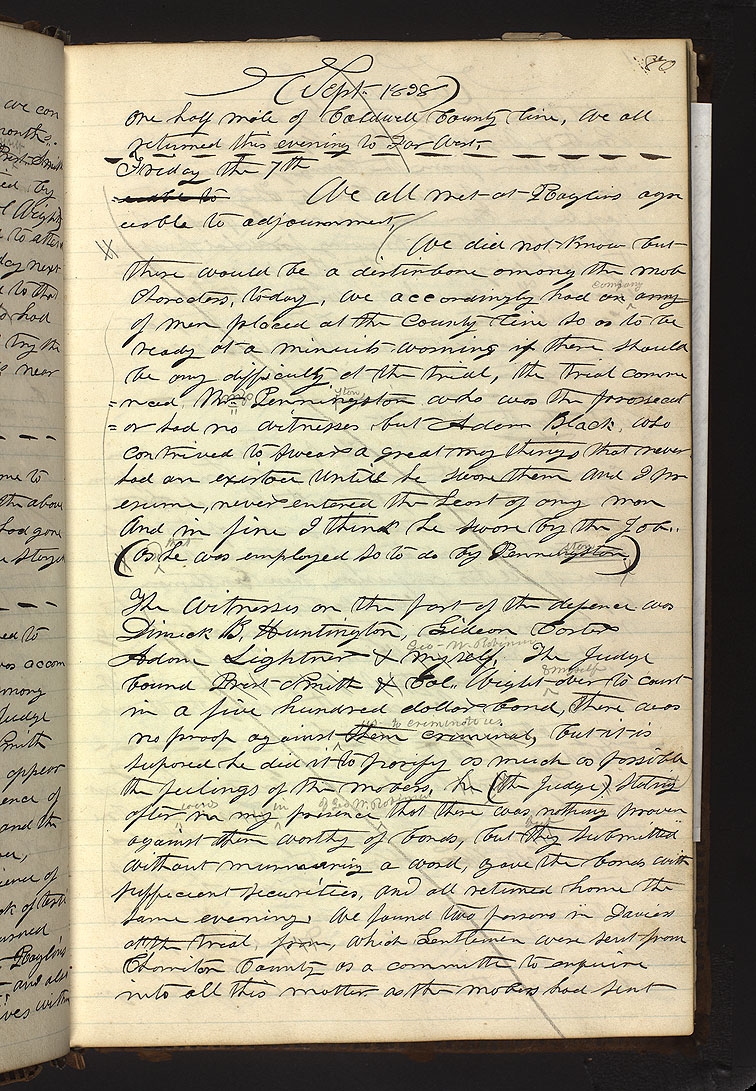 80
(Sept. 1838)
one half mile of Caldwell County line, We all
returned this evening to Far West.
Friday the 7th
eeable to We all met at Raglins agre
eeable to adjournment,
We did not know but
there would be a disturbane among the mob
Characters, today, we accordingly had an army company
of men placed at the County line so as to be
ready at a minuits warning if there should
be any difficulty at the trial, the trial comme
=nced, Mr Penningston who was the prosecut
=or had no witnesses but Adam Black, who
contrived to swear a great many things that never
had an existance untill he swore them and I pr
esume, never entered the heart of any man
And in fine I think he swore by the job..
(or that he was employed so to do by Penningston)
The Witnesses on the part of the defence was
Dimick B. Huntington, Gideon Carter
Geo- W. Robinson
Adam Lightner & myself, The Judge
& myself
bound Prest. Smith & Col. Wight over to court
in a five hundred dollar bond, there was
us- to criminate us
no proof against them criminal, but it is
suposed he did it to pasify as much as possible
the feelings of the mobers, he (the Judge) stated
in of Geo W. Robinson
after in my presence that there was nothing proven
against them worthy of bonds, but they submitted
without murmuring a word, gave the bonds with
sufficient securities, and all returned home the
same evening. We found two persons in Daviess
at the trial, from, which Gentlemen were sent from
Charriton County as a committe to enquire
into all this matter. as the mobers had sent
we can
months.
Prest. Smith
by
Wight
to atte
day next
to that
had
try the
near
me to
the above
had gone
ed to
was accom
among
Judge
Smith
appear
and the
ance of
Raglins
and also